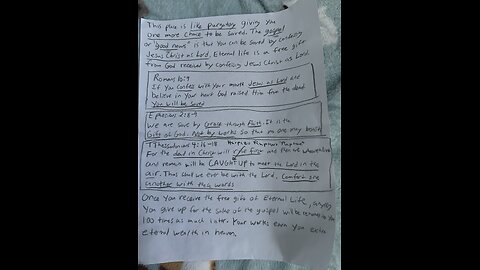 This place is like purgatory giving you
one more chance to be saved. The gospel
or "good news" is that you can be saved by confessing
Jesus Christ as Lord. Eternal life is a free gift
from God received by confessing Jesus Christ as Lord.
Romans 10:9
If you confess with your mouth Jesus as Lord and
believe in your heart God raised Him from the dead
You will be saved
Ephesians 2:8-9
We are save by grace through Faith. It is the
Gift of God. Not by works so that no one may boast
1 Thessalonians 4:16-18 Harpizo Rapturo "Rapture"
For the dead in Christ will rise first and then we who are alive
and remain will be CAUGHT UP to meet the Lord in the
air. Thus shall we ever be with the Lord. Comfort one
another with these words
Once you receive the free gift of Eternal Life, anything
You give up for the sake of the gospel will be returned to you
100 times as much later. Your works earn you extra
eternal wealth in heaven.